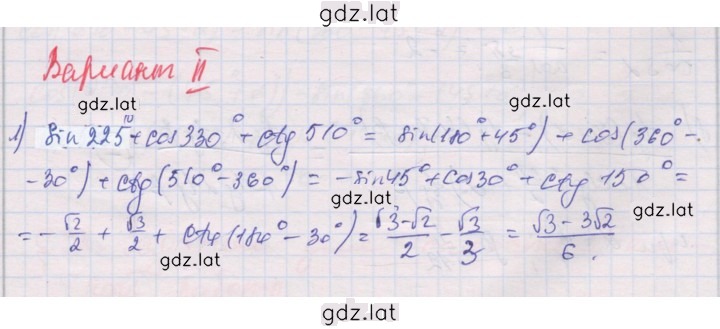 gdz.lat
Вариант II
gdz.lat
gdz.lat
1) sin 225° + cos 330° + ctg 510° = sin(180° + 45°) + cos(360° -
gdz.lat
- 30°) + ctg(510° - 360°) = - sin 45° + cos 30° + ctg 150° =
gdz.lat
= - √2/2 + √3/2 + ctg(180° - 30°) = (√3 - √2)/2 - √3/3 = (√3 - 3√2)/6.
gdz.lat
gdz.lat
gdz.lat